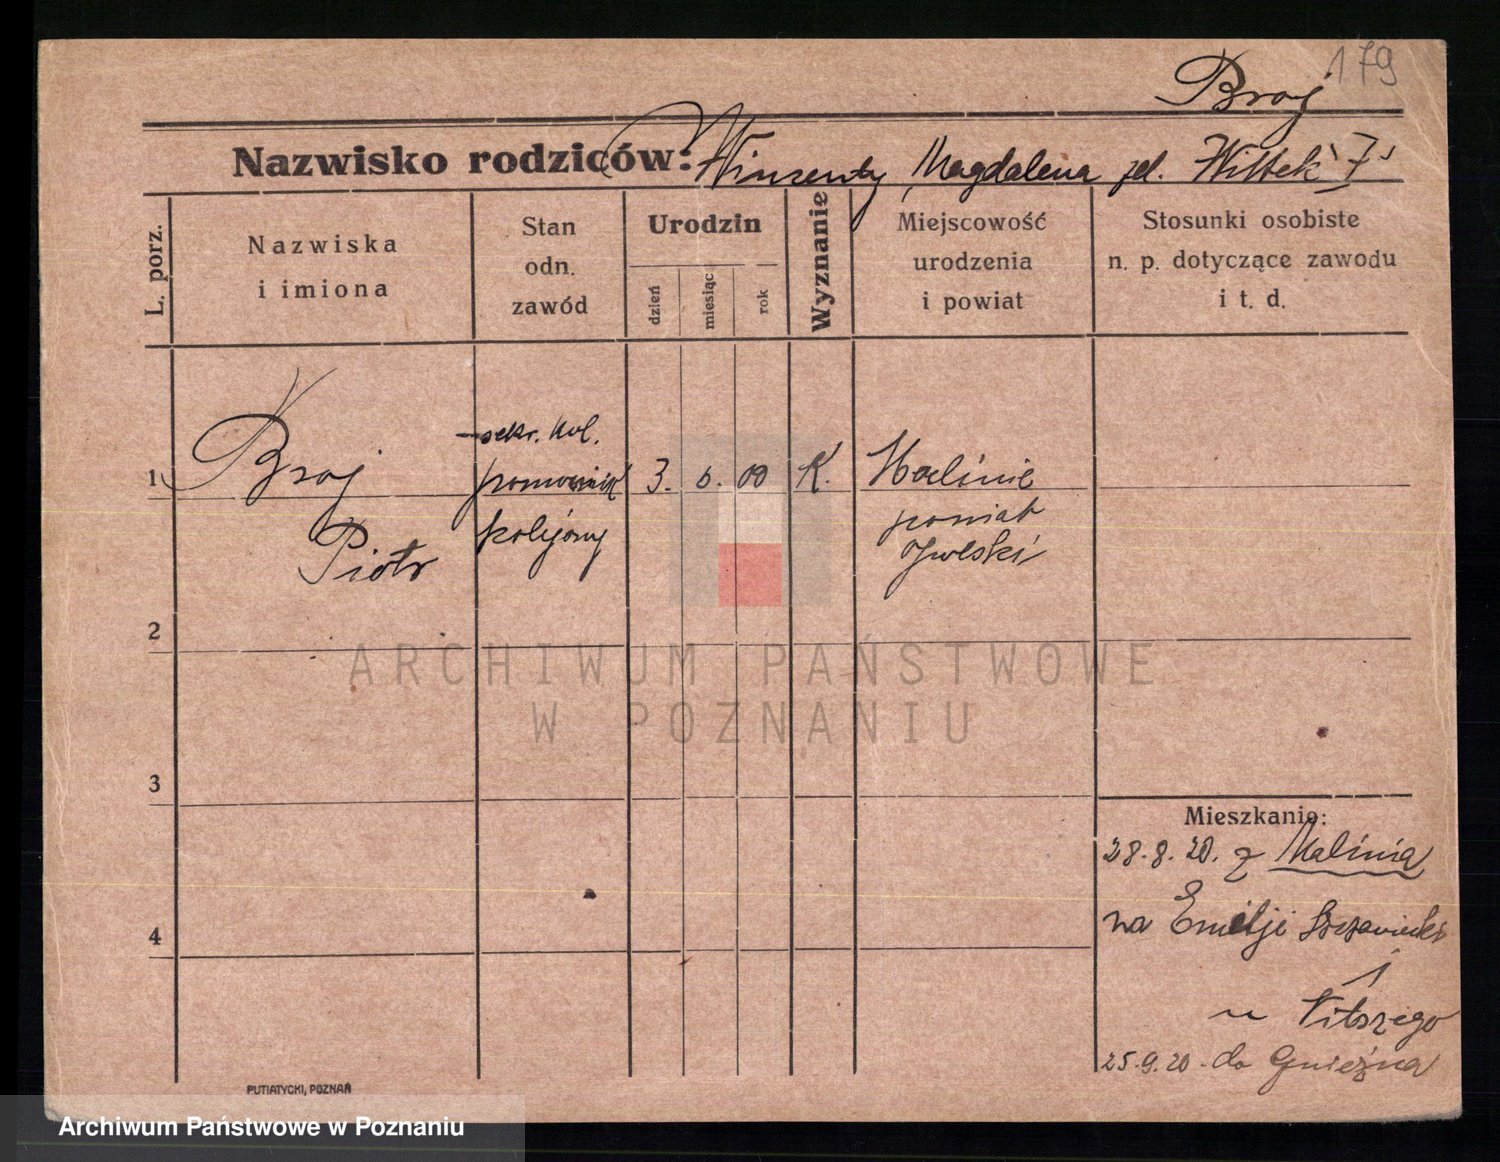 179
Braj
Nazwisko rodziców: Winzenty, Magdalena zd. Wittek
L. porz.
Nazwiska
i imiona
Stan
odn.
zawód
Urodzin
dzień
miesiąc
rok
Wyznanie
Miejscowość
urodzenia
i powiat
Stosunki osobiste
n. p. dotyczące zawodu
i t. d.
1
Braj
Piotr
sekr. kol.
pomocnik
kolejowy
3. 6. 00
K.
powiat
2
3
4
Mieszkanie:
28.8.20. z Malinia
na Emilji Sczanieckiej
1
u Vitszego
25.9.20. do Gniezna
PUTIATYCKI, POZNAŃ
ARCHIWUM PAŃSTWOWE
W POZNANIU
Archiwum Państwowe w Poznaniu